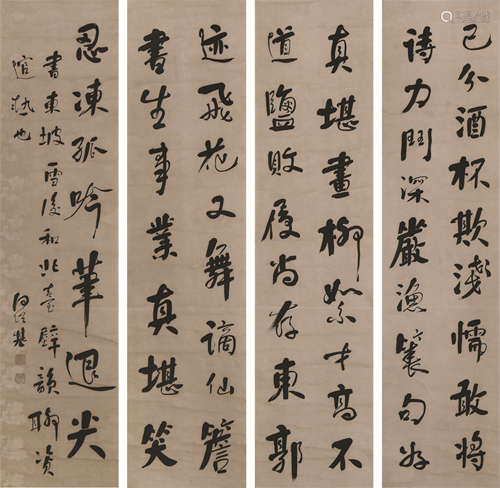 已分酒杯欺淺懦敢將
詩力鬥深嚴漁簑句好
真堪畫柳絮才高不
道鹽敗履尚存東郭
迹飛花又舞謫仙簷
書生事業真堪笑
忍凍孤吟筆退尖
書東坡雪後和北臺壁韻聊資
逭熱也
何紹基